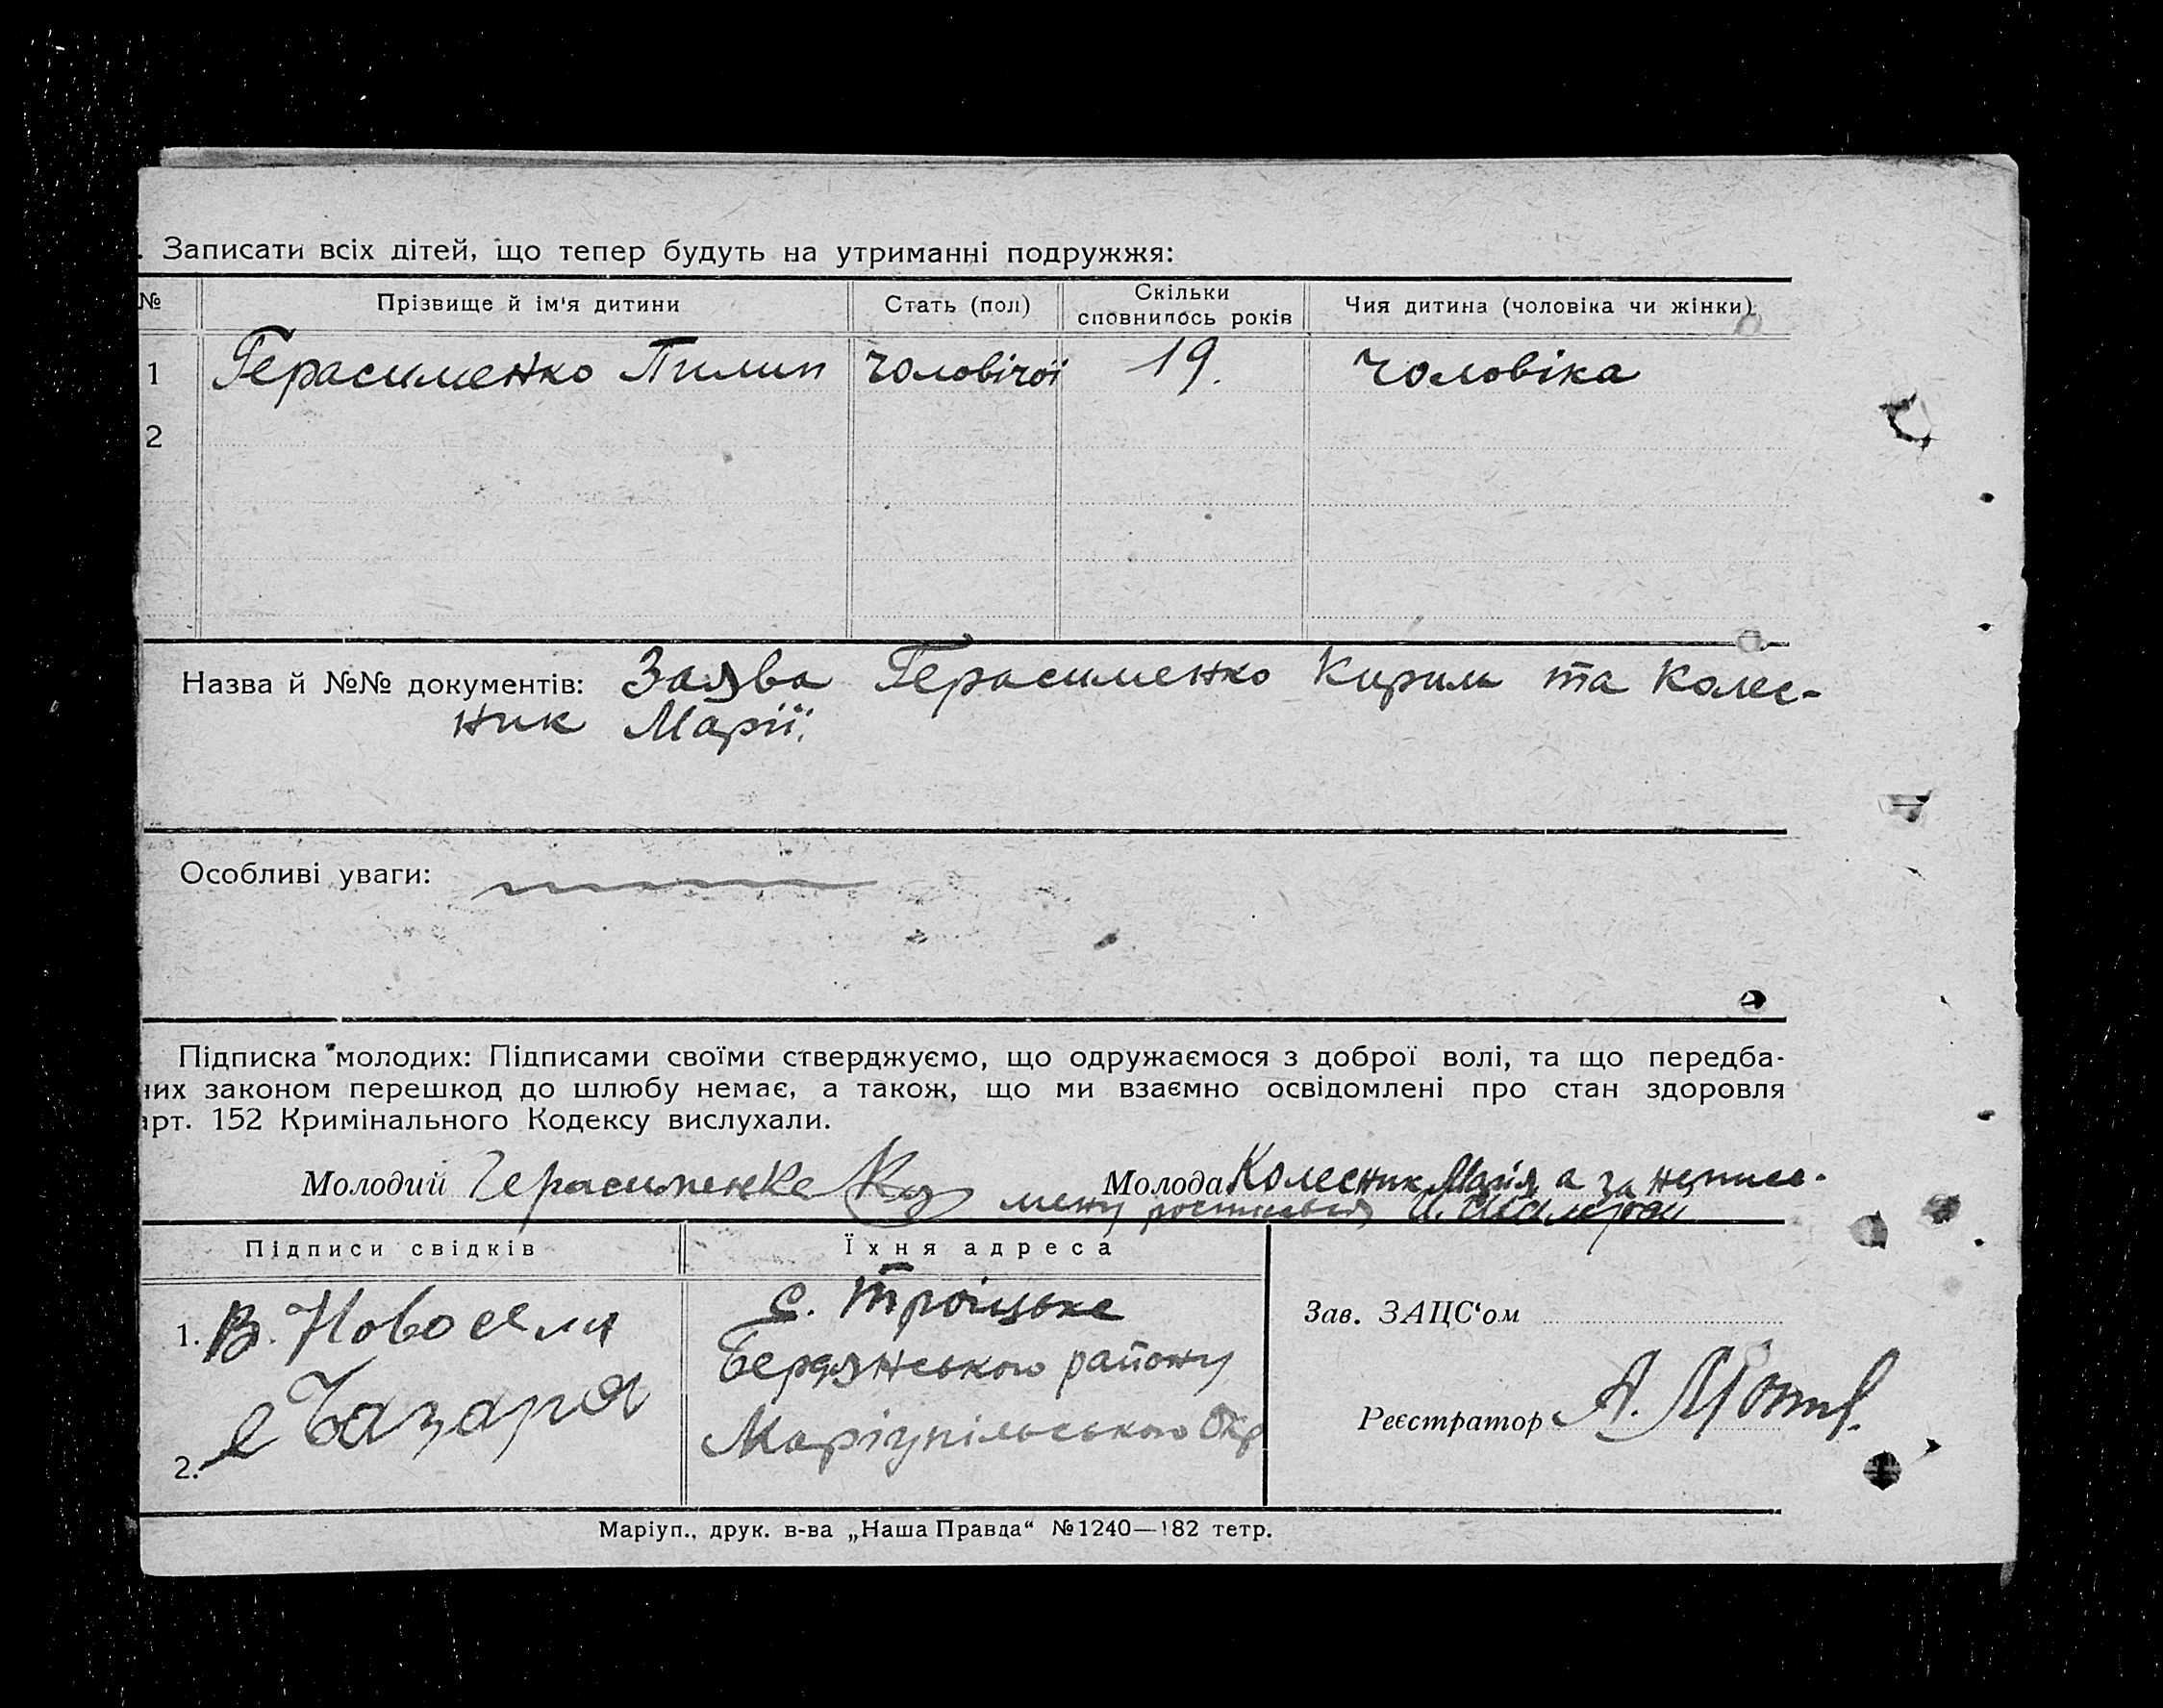 . Записати всіх дітей, що тепер будуть на утриманні подружжя:
№ Прізвище й ім'я дитини Стать (пол) Скільки сповнилось років Чия дитина (чоловіка чи жінки)
1 Герасименко Пилип чоловічої 19. чоловіка
2
Назва й №№ документів: Заява Герасименко Кирила та Колес-
ник Марії.
Особливі уваги:
Підписка молодих: Підписами своїми стверджуємо, що одружаємося з доброї волі, та що передба-
них законом перешкод до шлюбу немає, а також, що ми взаємно освідомлені про стан здоровля
арт. 152 Кримінального Кодексу вислухали.
Молодий Герасименко Молода Колесник Марія а за
Підписи свідків Їхня адреса
1. В. с. Троіцьке
Бердянського району
2. Маріупільського Окр
Зав. ЗАЦС'ом
Реєстратор А.
Маріуп., друк. в-ва „Наша Правда“ №1240—182 тетр.